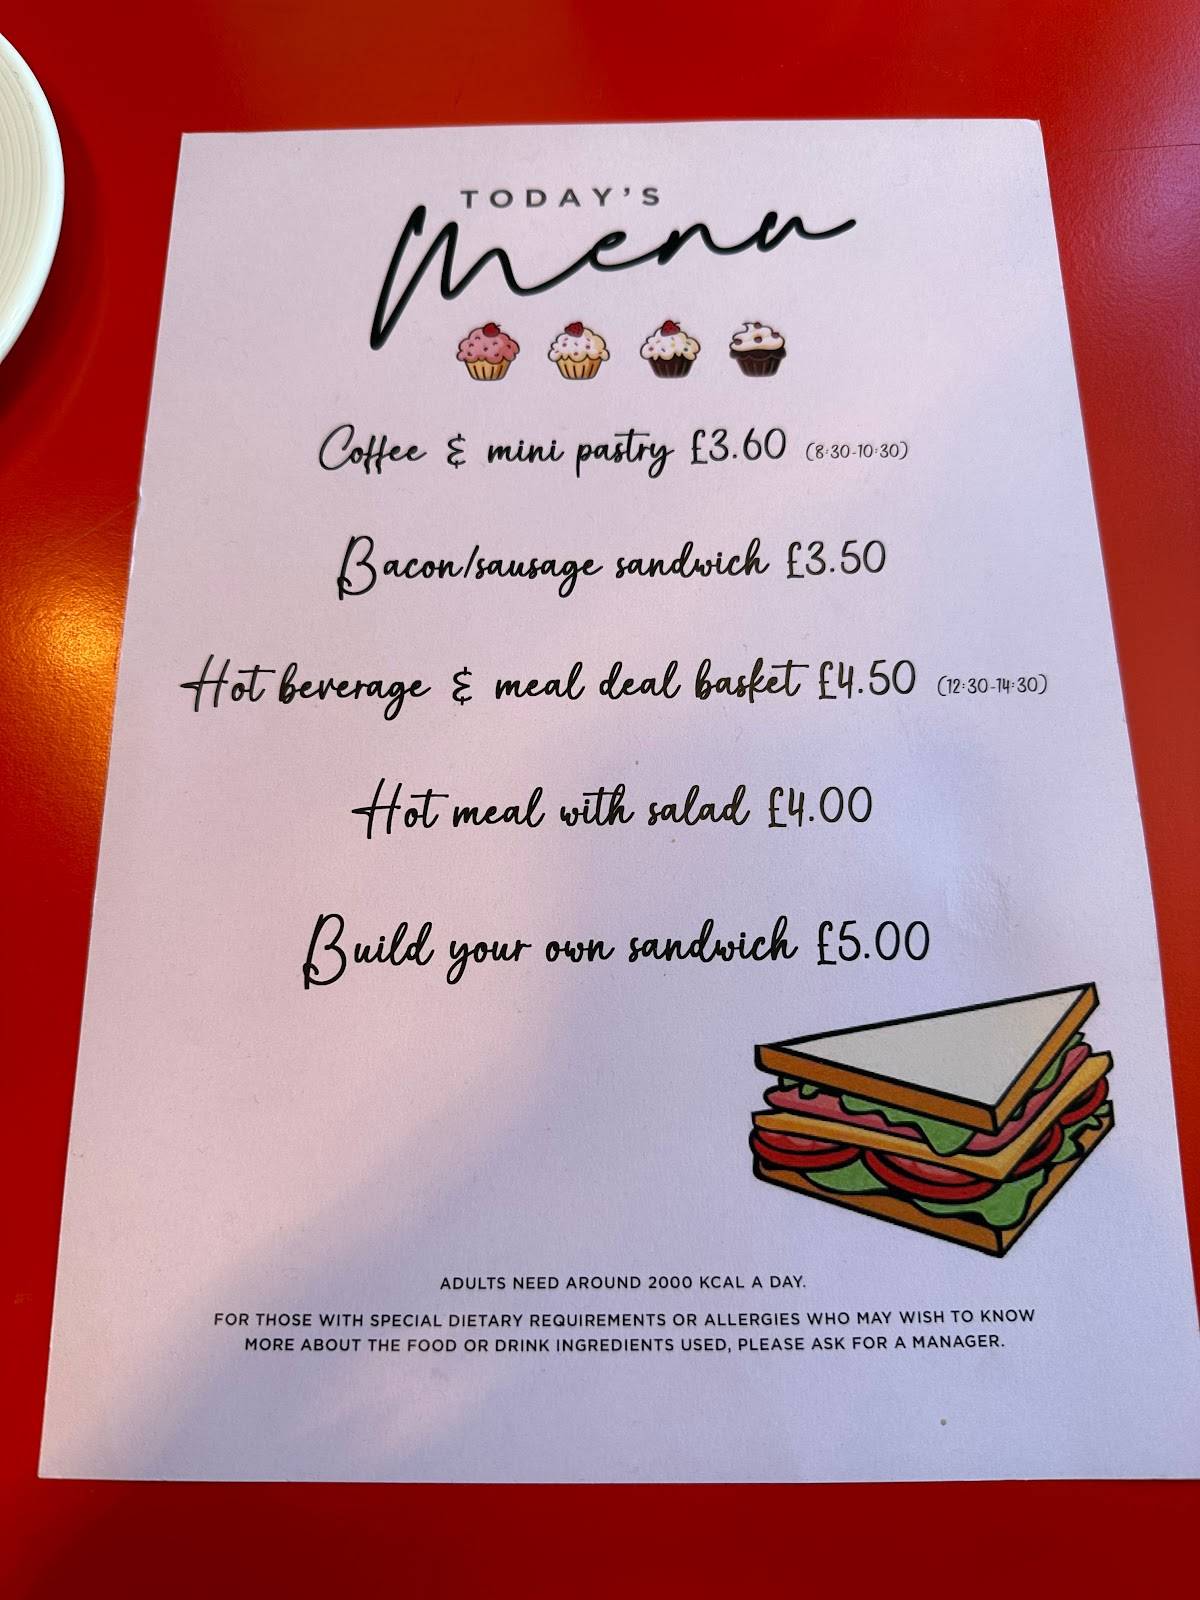 TODAY'S
Menu
Coffee & mini pastry £3.60 (8:30-10:30)
Bacon/sausage sandwich £3.50
Hot beverage & meal deal basket £4.50 (12:30-14:30)
Hot meal with salad £4.00
Build your own sandwich £5.00
ADULTS NEED AROUND 2000 KCAL A DAY.
FOR THOSE WITH SPECIAL DIETARY REQUIREMENTS OR ALLERGIES WHO MAY WISH TO KNOW
MORE ABOUT THE FOOD OR DRINK INGREDIENTS USED, PLEASE ASK FOR A MANAGER.